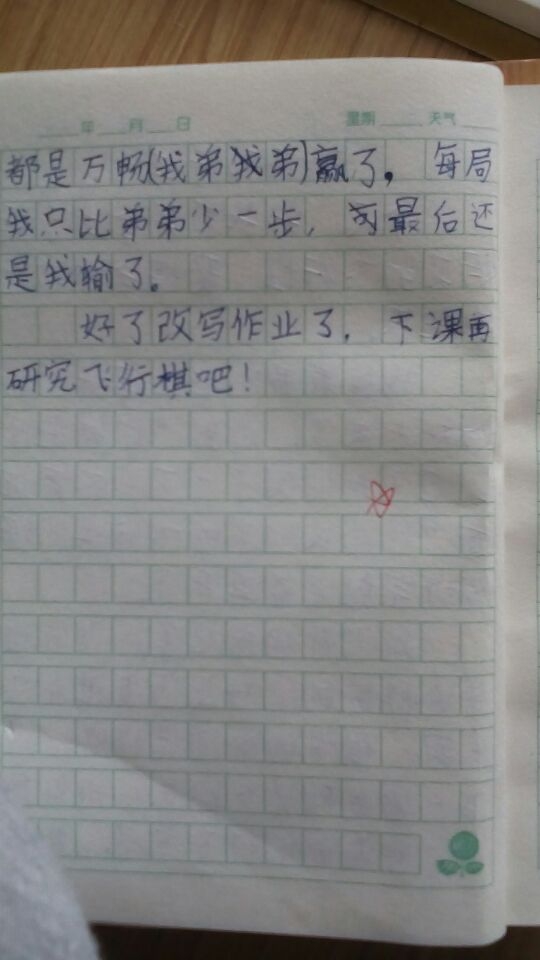 年 月 日 星期 天气
都是万畅(我弟我弟)赢了。每局
我只比弟弟少一步,可最后还
是我输了。
好了改写作业了，下课再
研究飞行棋吧！